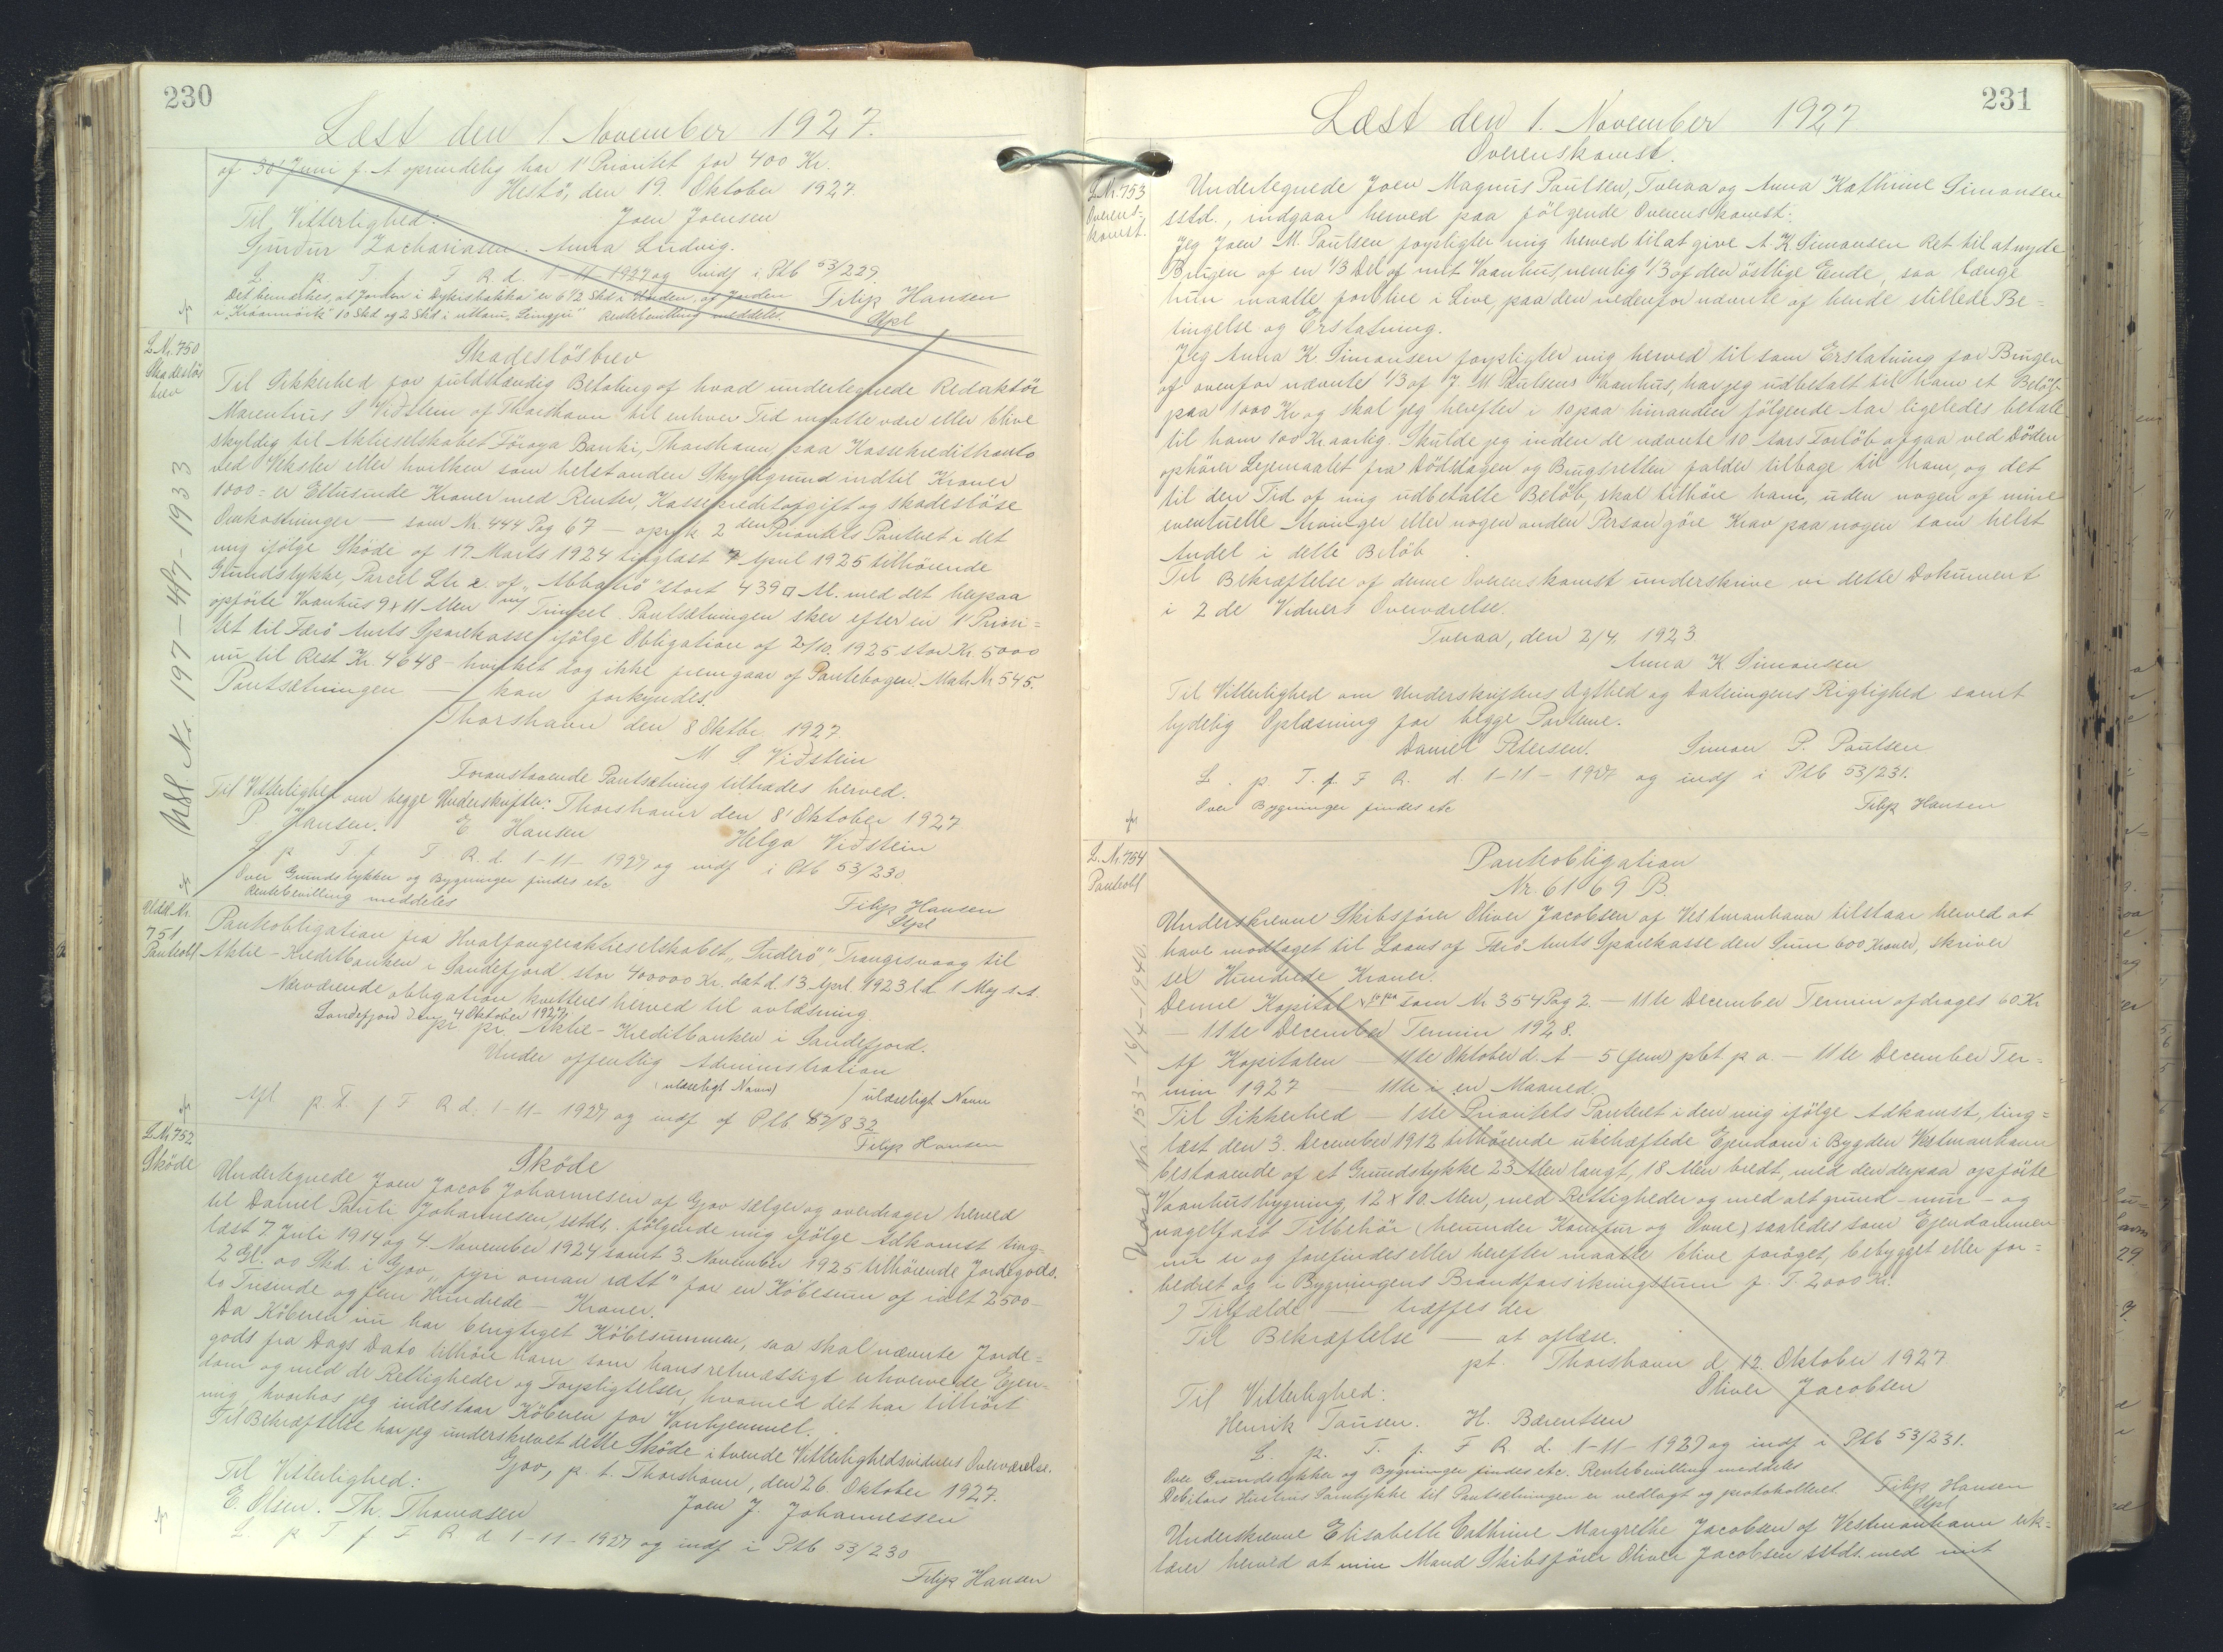 230
Læst den 1. November 1927.
af 30' Juni f. A oprindelig har 1' Prioritet for 400 Kr.
Hestö, den 19. Oktober 1927.
Til Vitterlighed: Joen Joensen
Sjurður Zachariasen. Anna Ludvig.
L. p. T. f. F. R. d. 1-11-1927 og indf i Ptb 53/229.
Det bemærkes, at Jorden i er 6 1/2 Skd i af Jorden
Filip Hansen
i 10 Skd og 2 Skd i Rentebevilling meddeles.
Stpl
L Nr. 750
Skadeslös
brev
Skadeslösbrev
Til Sikkerhed for fuldstændig Betaling af hvad undertegnede Redaktör
Marentius S Viðstein af Thorshavn til enhver Tid maatte være eller blive
skyldig til Aktieselskabet Föroya Banki, Thorshavn, paa Kassekreditkonto
ved Veksler eller hvilken som helst anden Skyldgrund indtil Kroner
1000 = er Ettusinde Kroner med Renter, Kassekreditafgift og skadeslöse
Omkostninger — som Nr. 444 Pag 67 — opryk 2 den Prioritets Panteret i det
mig ifölge Sköde af 17 Marts 1924 tinglæst 7 April 1925 tilhörende
Grundstykke, Parcel Ltr æ af „Abbatrö" stort 439 □ Al. med det herpaa
opförte Vaanhus 9 x 11 Alen m/ Trinpel. Pantsætningen sker efter en 1' Priori=
tet til Færö Amts Sparekasse ifölge Obligation af 2/10. 1925 stor Kr. 5000
nu til Rest Kr. 4648 - hvilket dog ikke fremgaar af Pantebogen. Matr. Nr. 545.
Pantsætningen — kan forkyndes.
Thorshavn den 8 Oktbr. 1927.
M S. Viðstein
Foranstaaende Pantsætning tiltrædes herved.
Til Vitterlighed om begge Underskrifter: Thorshavn den 8' Oktober 1927
P Hansen. E. Hansen Helga Viðstein
L p T f F. R. d. 1-11-1927 og indf i Ptb 53/230.
Over Grundstykker og Bygninger findes etc
Rentebevilling meddeles
Filip Hansen
Stpl
Udsl. Nr. 197 - 4/7 - 1933
Udsl. Nr.
751
Panteobl
Panteobligation fra Hvalfangeraktieselskabet „Suderö", Trangisvaag til
Aktie-Kreditbanken i Sandefjord stor 400000 Kr. dat d. 13 April 1923 l.d 1 Maj s.A.
Nærværende obligation kvitteres herved til avlæsning.
Sandefjord den 4 Oktober 1927.
pr pr. Aktie-Kreditbanken i Sandefjord.
Under offentlig Administration
(ulæseligt Navn) / ulæseligt Navn
Afl p. T. f F R d. 1-11-1927 og indf af Ptb 832
Filip Hansen
L Nr 752
Sköde
Sköde
Undertegnede Joen Jacob Johannesen af Gjov sælger og overdrager herved
til Daniel Pauli Johannesen, sstds. følgende mig ifölge Adkomst ting=
læst 7. Juli 1914 og 4. November 1924 samt 3. November 1925 tilhörende Jordegods.
2 Gl. 00 Skd. i Gjov „fyri oman rætt" for en Köbesum af ialt 2500-
to Tusinde og fem Hundrede — Kroner.
Da Köberen nu har berigtiget Köbesummen, saa skal nævnte Jorde=
gods fra Dags Dato tilhöre ham som hans retmæssigt erhvervede Ejen-
dom og med de Rettigheder og Forpligtelser, hvormed det har tilhört
mig, hvorhos jeg indestaar Köberen for Vanhjemmel.
Til Bekræftelse har jeg underskrevet dette Sköde i tvende Vitterlighedsvidners Overværelse.
Gjov, p. t. Thorshavn, den 26. Oktober 1927.
Til Vitterlighed: Joen J. Johannessen
E. Olsen. Th. Thomasen
L p T f F R d 1-11-1927 og indf i Ptb 53/230
Filip Hansen
231
Læst den 1. November 1927
L. Nr. 753
Overens-
komst.
Overenskomst.
Undertegnede Joen Magnus Paulsen, Tveraa og Anna Kathrine Simonsen
sstd., indgaar herved paa fölgende Overenskomst:
Jeg Joen M. Paulsen forpligter mig herved til at give A. K Simonsen Ret til at nyde
Brugen af en 1/3 Del af mit Vaanhus, nemlig 1/3 af den östlige Ende, saa længe
hun maatte forblive i Live, paa den nedenfor nævnte af hende stillede Be=
tingelse og Erstatning.
Jeg Anna K. Simonsen forpligter mig herved til som Erstatning for Brugen
af ovenfor nævnte 1/3 af J. M Paulsens Vaanhus, har jeg udbetalt til ham et Belöb
paa 1000 Kr og skal jeg herefter i 10 paa hinanden fölgende Aar ligeledes betale
til ham 100 Kr aarlig. Skulde jeg inden de nævnte 10 Aars Forlöb afgaa ved Döden
ophörer Lejemaalet fra Dödsdagen og Brugsretten falder tilbage til ham, og det
til den Tid af mig udbetalte Belöb, skal tilhöre ham, uden nogen af mine
eventuelle Arvinger eller nogen anden Person göre Krav paa nogen som helst
Andel i dette Belöb.
Til Bekræftelse af denne Overenskomst underskrive vi dette Dokument
i 2 de Vidners Overværelse.
Tveraa, den 2/4. 1923
Anna K Simonsen
Til Vitterlighed om Underskriftens Ægthed og Dateringens Rigtighed samt
tydelig Oplæsning for begge Parterne.
Daniel Petersen. Simon P. Paulsen
L. p. T. f. F R. d. 1-11-1927 og indf i Ptb 53/231.
Over Bygninger findes etc
Filip Hansen
L. Nr. 754
Panteobl
Panteobligation
Nr. 6169 B.
Underskrevne Skibsförer Oliver Jacobsen af Vestmanhavn tilstaar herved at
have modtaget til Laans af Færö Amts Sparekasse den Sum 600 Kroner, skriver
sex Hundrede Kroner.
Denne Kapital som Nr 354 Pag 2. — 11te December Termin afdrages 60 Kr
— 11te December Termin 1928.
Af Kapitalen — 11te Oktober d. A — 5 (fem) pCt p a. — 11te December Ter=
min 1927 — 11te i en Maaned.
Til Sikkerhed — 1ste Prioritets Panteret i den mig ifölge Adkomst, ting=
læst den 3. December 1912 tilhörende ubehæftede Ejendom i Bygden Vestmanhavn
bestaaende af et Grundstykke 23 Alen langt, 18 Alen bredt, med den derpaa opförte
Vaanhusbygning, 12 x 10. Alen, med Rettigheder og med alt grund- mur- og
nagelfast Tilbehör (herunder Komfur og Ovne) saaledes som Ejendommen
nu er og forefindes eller herefter maatte blive foröget, bebygget eller for=
bedret og i Bygningens Brandforsikringssum p. T. 2000 Kr.
I Tilfælde — træffes der
Til Bekræftelse — at aflæse.
pt. Thorshavn d 12. Oktober 1927.
Til Vitterlighed: Oliver Jacobsen
Henrik Tausen. H. Bærentsen
L. p. T. f. F R d. 1-11-1927 og indf i Ptb 53/231.
Over Grundstykker og Bygninger findes etc. Rentebevilling meddeles
Debitors Hustrus Samtykke til Pantsætningen er vedlagt og protokolleret.
Filip Hansen
Stpl
Underskrevne Elisabeth Cathrine Margrethe Jacobsen af Vestmanhavn erk-
lærer herved at min Mand Skibsförer Oliver Jacobsen sstds. med mit
Udsl Nr 153 - 16/4 - 1940.